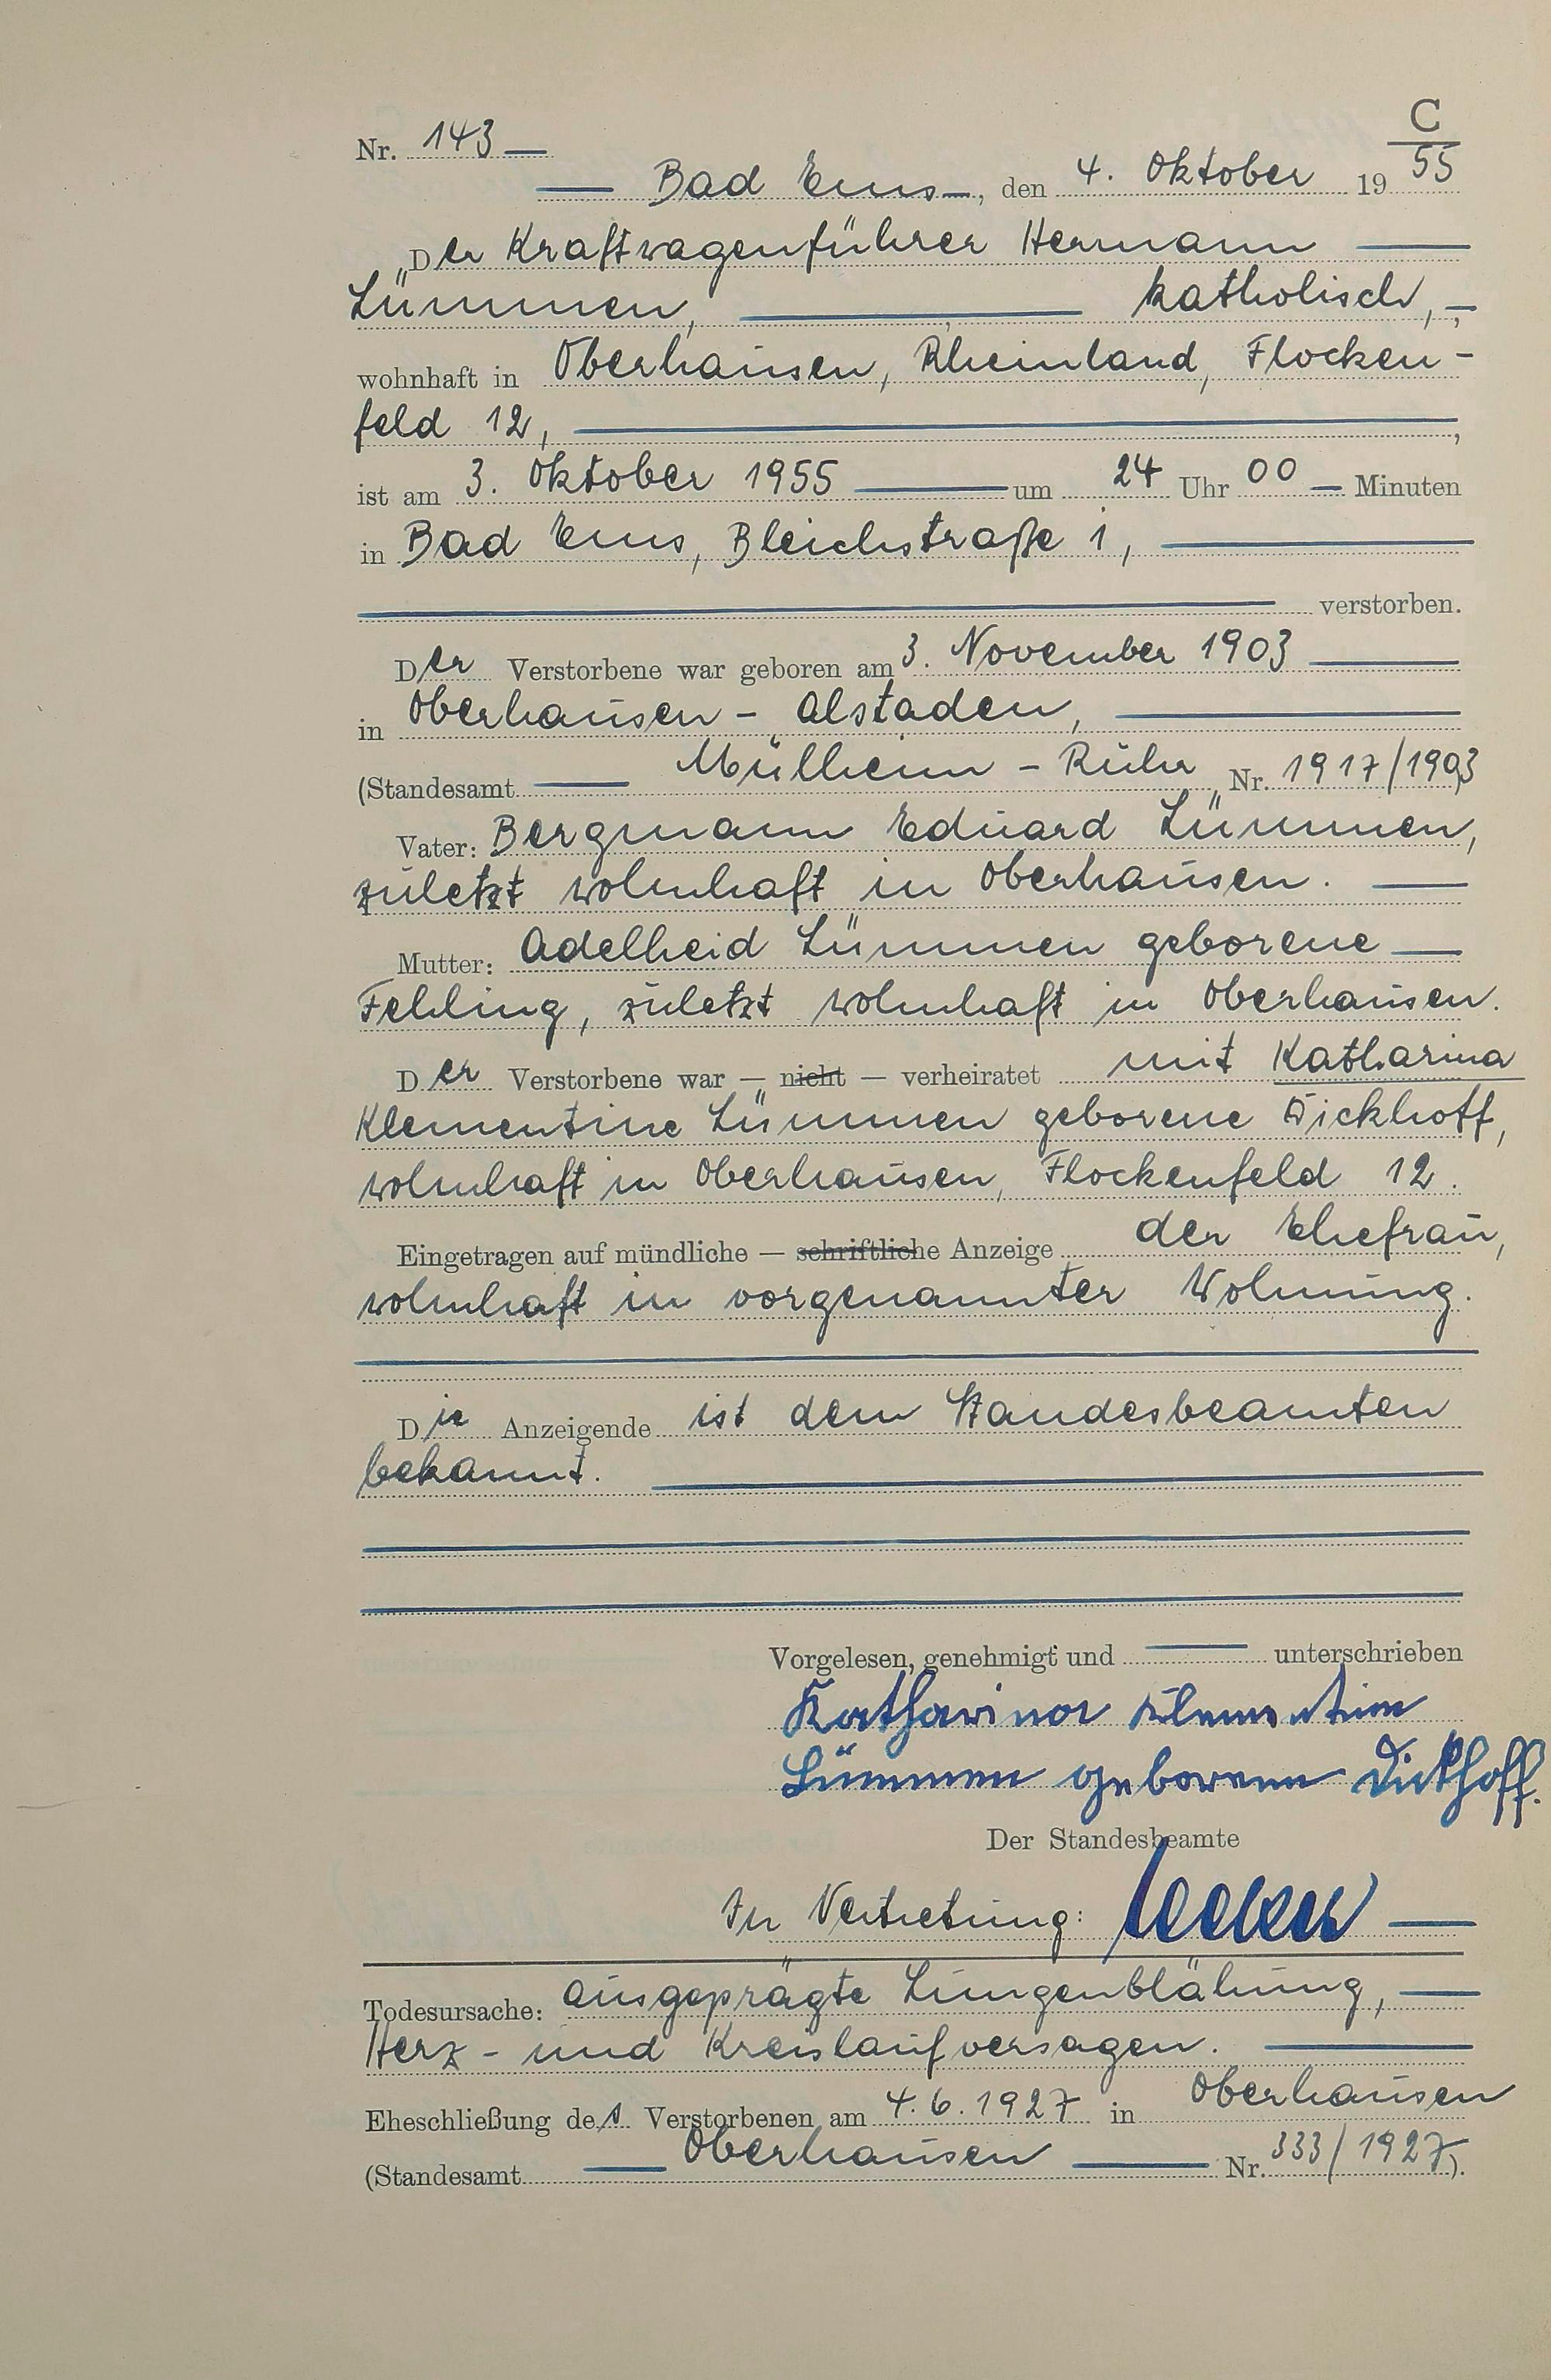 C
Nr. 143 —
— Bad Ems —, den 4. Oktober 19 55
„Der Kraftwagenführer Hermann —
Lümmen, — katholisch, —,
wohnhaft in Oberhausen, Rheinland, Flocken-
feld 12, —,
ist am 3. Oktober 1955 — um 24 Uhr 00 — Minuten
in Bad Ems, Bleichstraße 1, —
— verstorben.
Der Verstorbene war geboren am 3. November 1903 —
in Oberhausen - Alstaden, —
(Standesamt — Mülheim - Ruhr Nr. 1917/1903)
Vater: Bergmann Eduard Lümmen,
zuletzt wohnhaft in Oberhausen. —
Mutter: Adelheid Lümmen geborene —
Fehling, zuletzt wohnhaft in Oberhausen.
Der Verstorbene war — nicht — verheiratet mit Katharina
Klementine Lümmen geborene Dickhoff,
wohnhaft in Oberhausen, Flockenfeld 12.
Eingetragen auf mündliche — schriftliche Anzeige der Ehefrau,
wohnhaft in vorgenannter Wohnung.
Die Anzeigende ist dem Standesbeamten
bekannt. —
Vorgelesen, genehmigt und — unterschrieben
Katharina Klementine
Lümmen geborene Dickhoff.
Der Standesbeamte
In Vertretung: —
Todesursache: Ausgeprägte Lungenblähung, —
Herz- und Kreislaufversagen. —
Eheschließung des Verstorbenen am 4.6.1927 in Oberhausen
(Standesamt — Oberhausen — Nr. 333/1927).